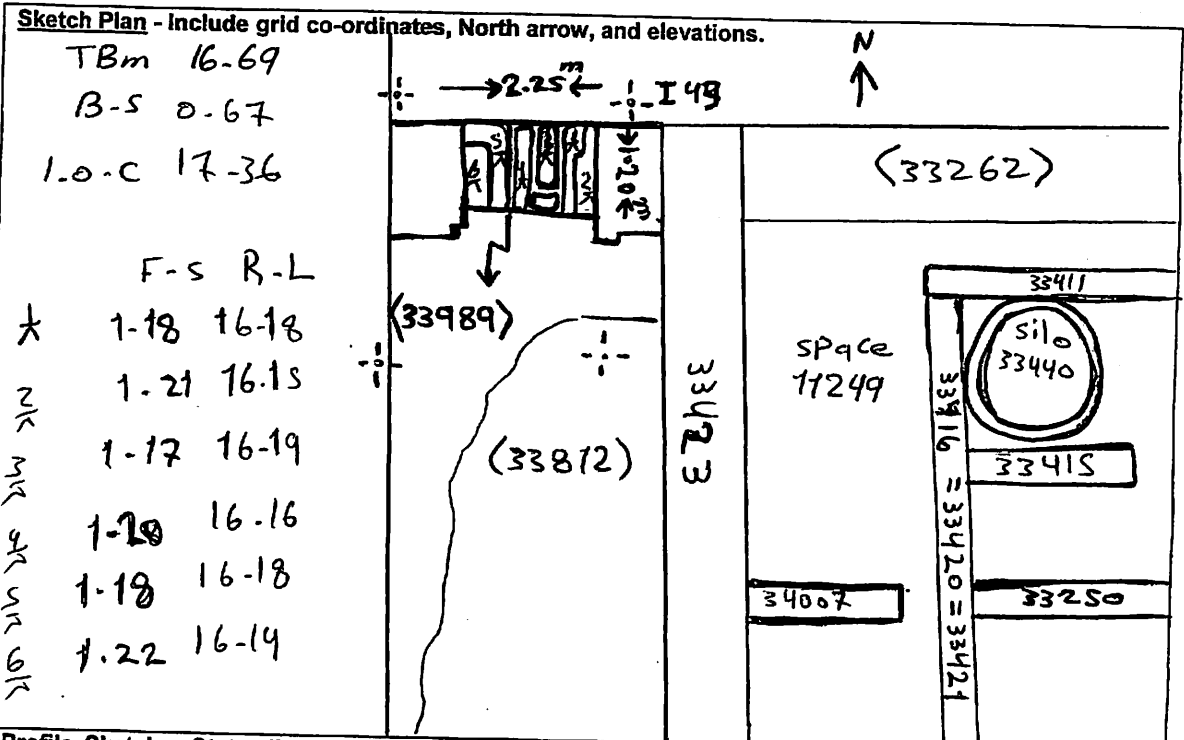 Sketch Plan - Include grid co-ordinates, North arrow, and elevations.
TBm 16-69
B-S 0-67
I.O.C 17-36
F-S R-L
1-18 16-18
2 1-21 16.15
1-17 16-19
16-16
1-18 16-18
6 1.22 16-14
N
2.25 m
I 49
5
6
2
1-20 m
(33989)
(33812)
33423
(33262)
space
11249
33411
silo
33440
33415
33416 = 33420 = 33421
34007
33250